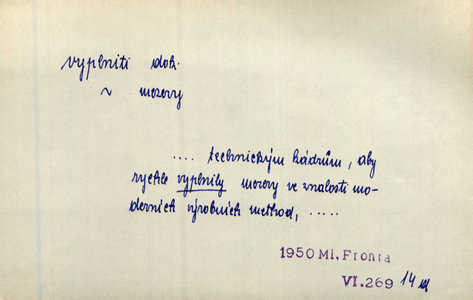 vyplniti dok.
~ mezery
.... technickým kádrům, aby
rychle vyplnily mezery ve znalosti mo-
derních výrobních method, .....
1950 Ml. Fronta
VI. 269 14